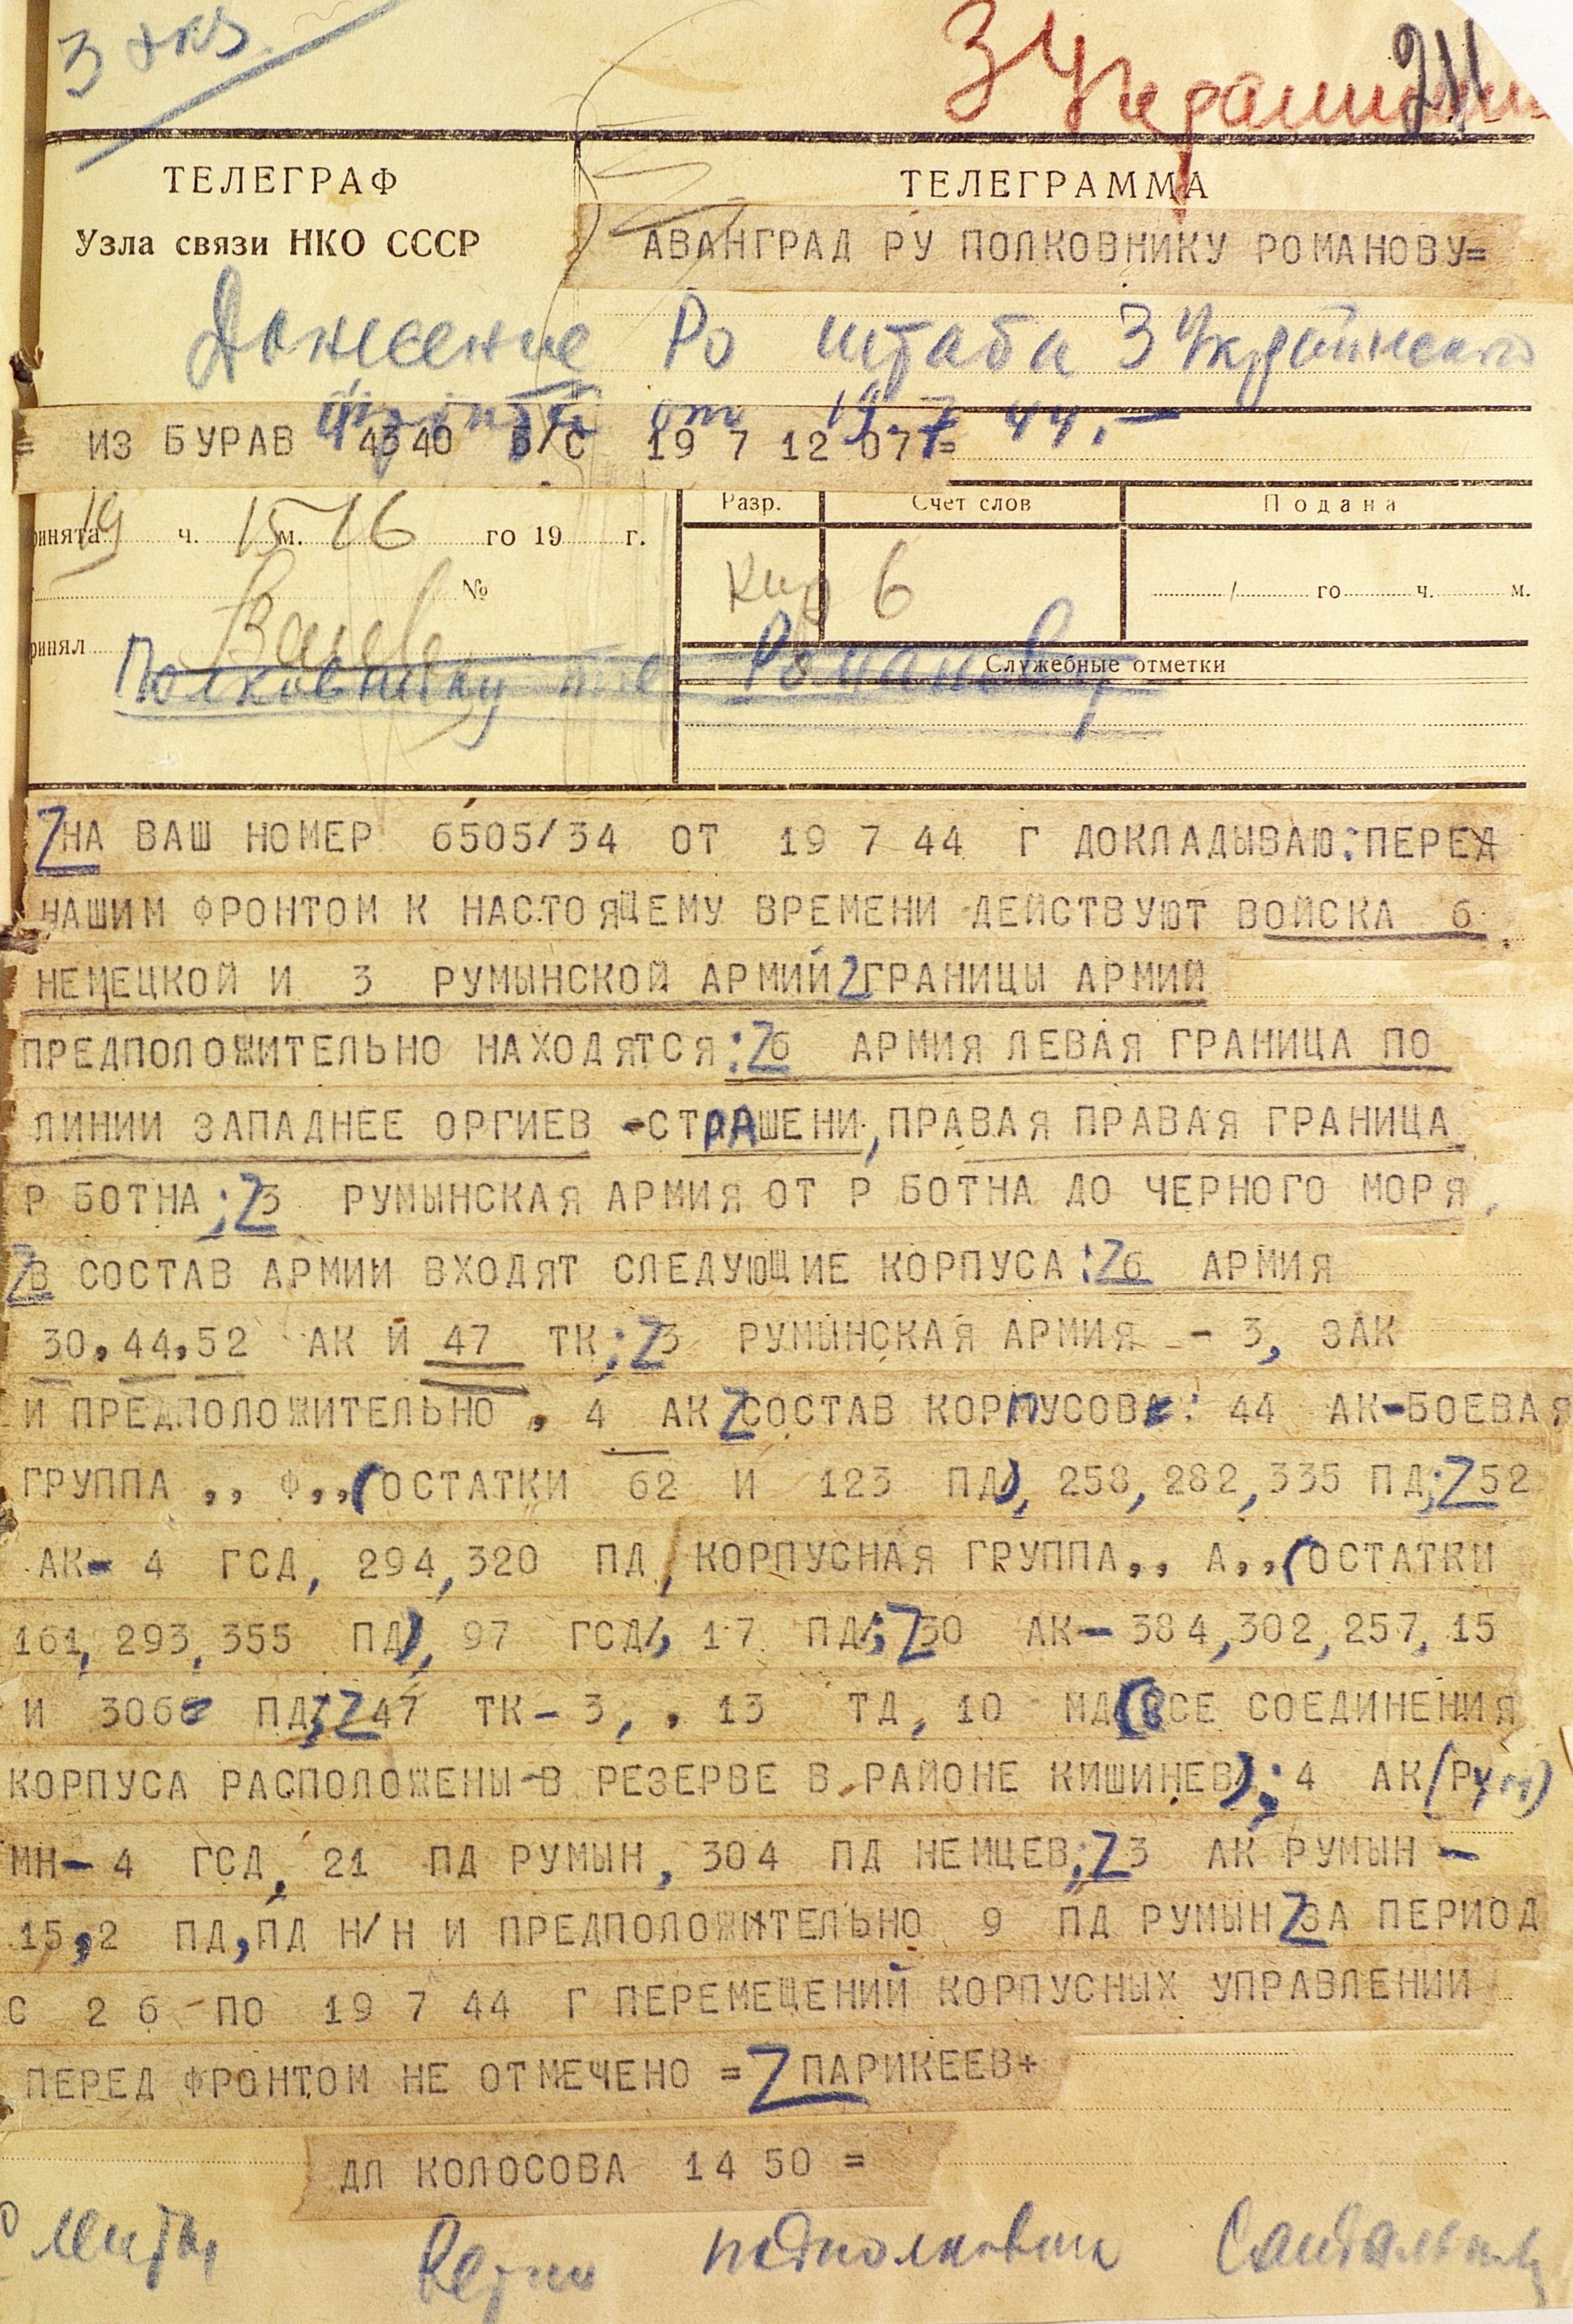 3 экз.
3 Украинский
211
ТЕЛЕГРАФ
ТЕЛЕГРАММА
Узла связи НКО СССР
АВАНГРАД РУ ПОЛКОВНИКУ РОМАНОВУ=
РО штаба 3 Украинского
фронта от 19.7 44.
= ИЗ БУРАВ 4340 С 19 7 12 07=
Разр. Счет слов Подана
ринята 19 ч. 15 м. 16 го 19 г.
№
6
го ч. м.
ринял
Полковнику Романову
Служебные отметки
НА ВАШ НОМЕР 6505/34 ОТ 19 7 44 Г ДОКЛАДЫВАЮ: ПЕРЕД
НАШИМ ФРОНТОМ К НАСТОЯЩЕМУ ВРЕМЕНИ ДЕЙСТВУЮТ ВОЙСКА 6
НЕМЕЦКОЙ И 3 РУМЫНСКОЙ АРМИЙ ГРАНИЦЫ АРМИЙ
ПРЕДПОЛОЖИТЕЛЬНО НАХОДЯТСЯ: 6 АРМИЯ ЛЕВАЯ ГРАНИЦА ПО
ЛИНИИ ЗАПАДНЕЕ ОРГИЕВ -СТРАШЕНИ, ПРАВАЯ ПРАВАЯ ГРАНИЦА
Р БОТНА; 3 РУМЫНСКАЯ АРМИЯ ОТ Р БОТНА ДО ЧЕРНОГО МОРЯ,
В СОСТАВ АРМИИ ВХОДЯТ СЛЕДУЮЩИЕ КОРПУСА: 6 АРМИЯ
30,44,52 АК И 47 ТК; 3 РУМЫНСКАЯ АРМИЯ - 3, ЗАК
И ПРЕДПОЛОЖИТЕЛЬНО , 4 АК СОСТАВ КОРПУСОВ: 44 АК-БОЕВАЯ
ГРУППА ,, Ф,,(ОСТАТКИ 62 И 123 ПД), 258, 282, 335 ПД; 52
АК- 4 ГСД, 294,320 ПД, КОРПУСНАЯ ГРУППА,, А,,(ОСТАТКИ
161, 293, 355 ПД), 97 ГСД, 17 ПД; 30 АК- 384,302,257, 15
И 306 ПД; 47 ТК- 3, , 13 ТД, 10 МД(ВСЕ СОЕДИНЕНИЯ
КОРПУСА РАСПОЛОЖЕНЫ В РЕЗЕРВЕ В РАЙОНЕ КИШИНЕВ); 4 АК(РУМ)
МН- 4 ГСД, 21 ПД РУМЫН, 304 ПД НЕМЦЕВ; 3 АК РУМЫН -
15,2 ПД, ПД Н/Н И ПРЕДПОЛОЖИТЕЛЬНО 9 ПД РУМЫН ЗА ПЕРИОД
С 2 6 ПО 19 7 44 Г ПЕРЕМЕЩЕНИЙ КОРПУСНЫХ УПРАВЛЕНИИ
ПЕРЕД ФРОНТОМ НЕ ОТМЕЧЕНО = ПАРИКЕЕВ+
ДЛ КОЛОСОВА 14 50 =
подполковник